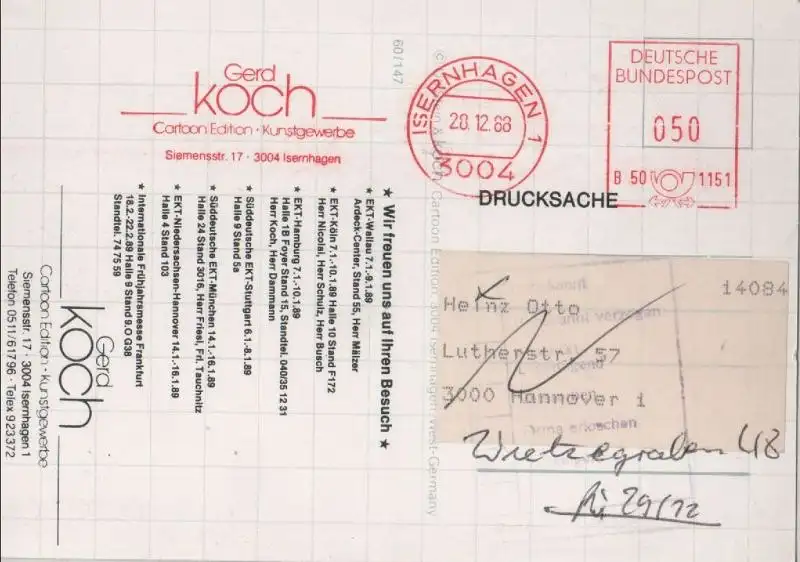 Gerd
koch
Cartoon Edition · Kunstgewerbe
Siemensstr. 17 · 3004 Isernhagen
60/147
ISERNHAGEN 1
28.12.88
3004
DEUTSCHE
BUNDESPOST
050
B 50 1151
DRUCKSACHE
14084
Heinz Otto
Lutherstr. 57
3000 Hannover 1
verzogen
erloschen
Wietzegraben 48
29/12
★ Wir freuen uns auf Ihren Besuch ★
★ EKT-Wallau 7.1.-9.1.89
Ardeck-Center, Stand 55, Herr Mälzer
★ EKT-Köln 7.1.-10.1.89 Halle 10 Stand F172
Herr Nicolai, Herr Schulz, Herr Busch
★ EKT-Hamburg 7.1.-10.1.89
Halle 1B Foyer Stand 15, Standtel. 040/35 12 31
Herr Koch, Herr Dammann
★ Süddeutsche EKT-Stuttgart 6.1.-8.1.89
Halle 9 Stand 5a
★ Süddeutsche EKT-München 14.1.-16.1.89
Halle 24 Stand 3016, Herr Friesl, Frl. Tauchnitz
★ EKT-Niedersachsen-Hannover 14.1.-16.1.89
Halle 4 Stand 103
★ Internationale Frühjahrsmesse Frankfurt
18.2.-22.2.89 Halle 9 Stand 9.O G38
Standtel. 74 75 59
Gerd
koch
Cartoon Edition · Kunstgewerbe
Siemensstr. 17 · 3004 Isernhagen 1
Telefon 0511/61 77 96 · Telex 9 23372
Cartoon Edition 3004 Isernhagen West-Germany